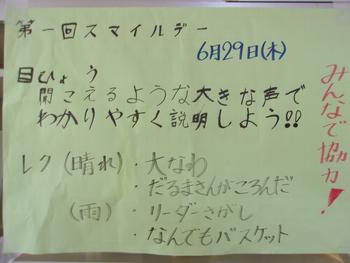 第一回スマイルデー
6月29日(木)
目ひょう
聞こえるような大きな声で
わかりやすく説明しよう!!
みんなで協力!
レク(晴れ)・大なわ
・だるまさんがころんだ
(雨)・リーダーさがし
・なんでもバスケット